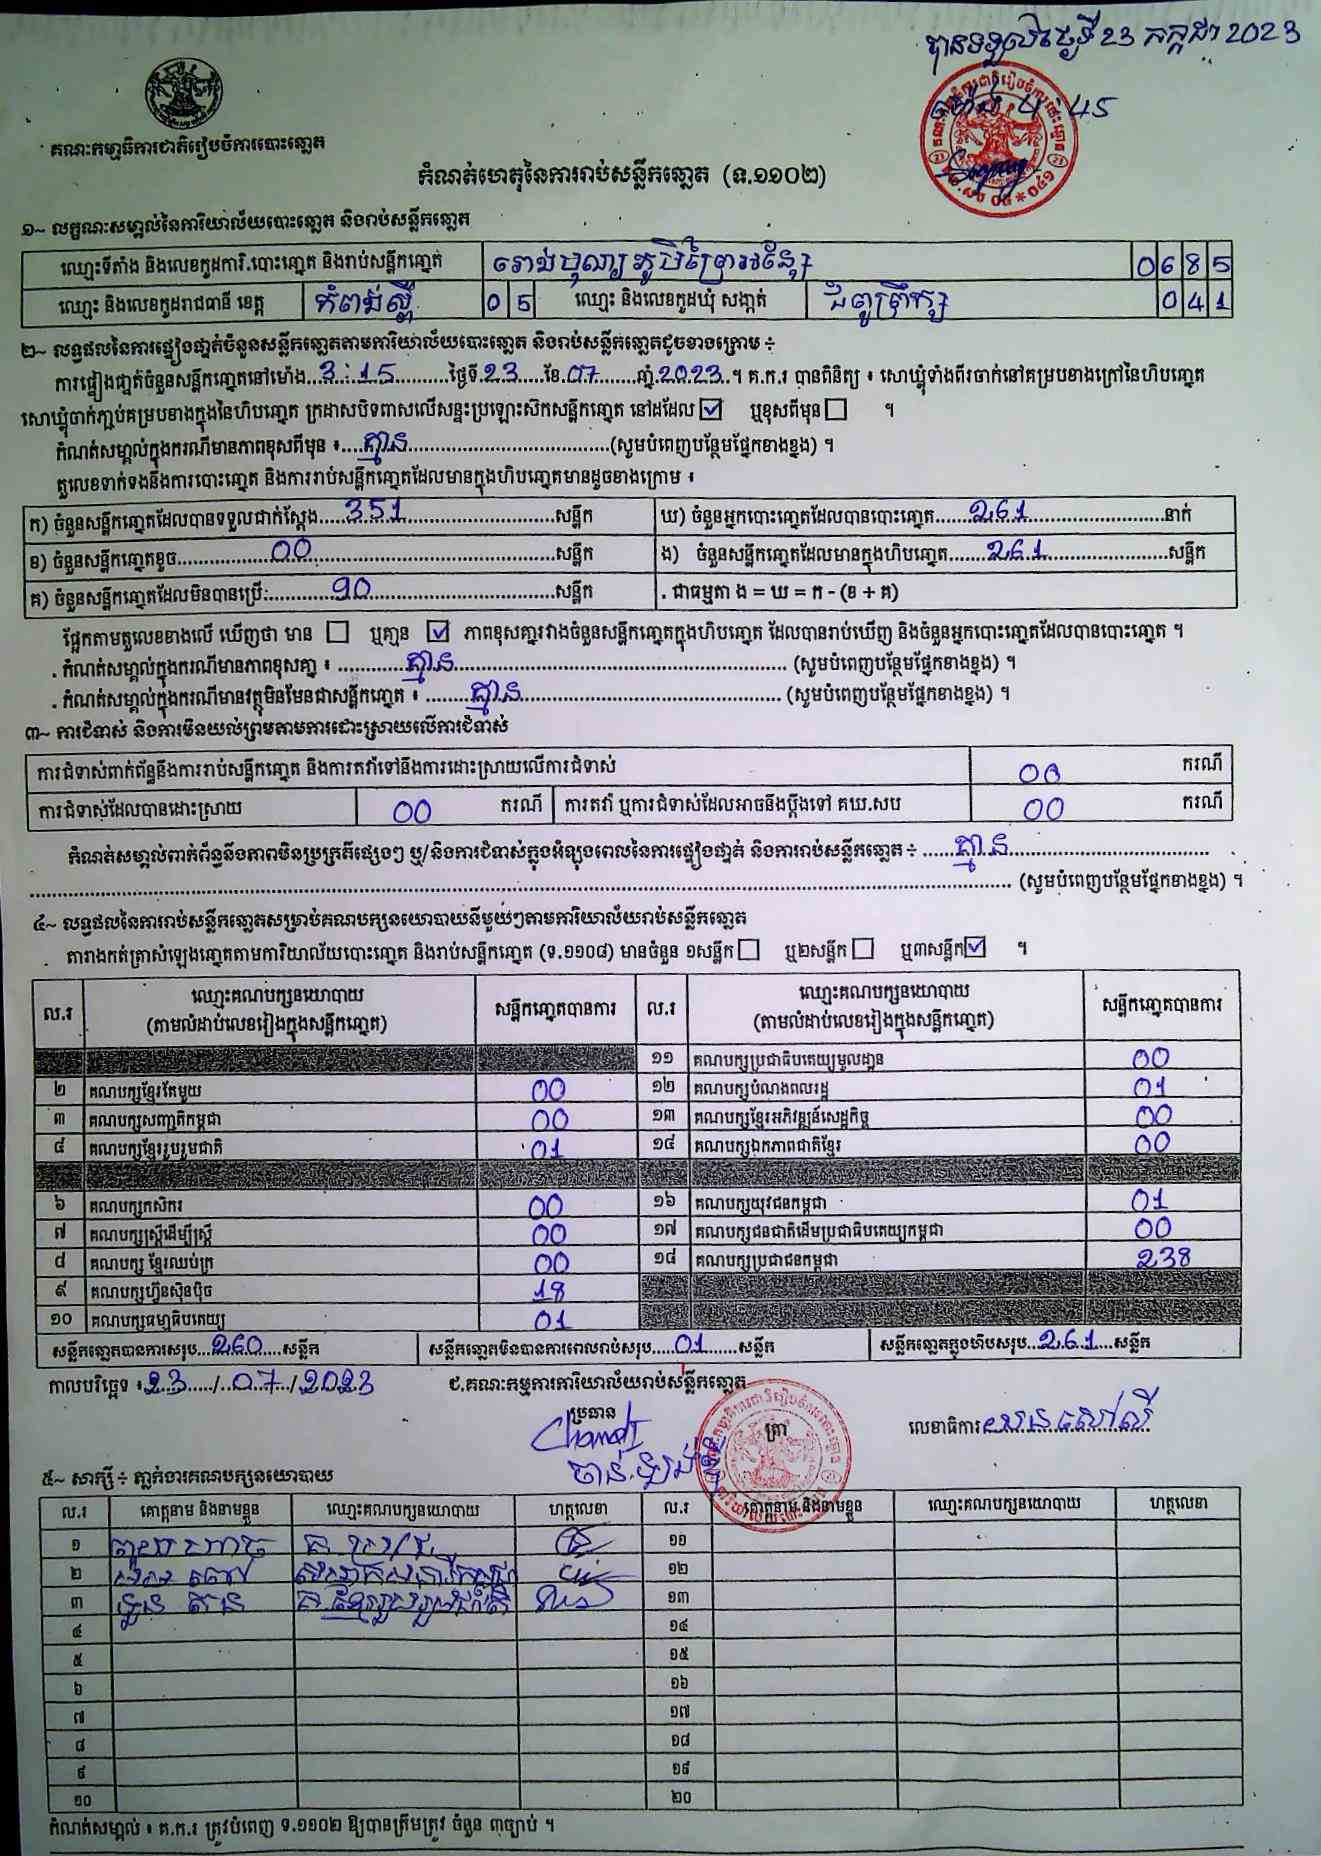 បានទទួលថ្ងៃទី 23 កក្កដា 2023
ម៉ោង 4 : 45
គណៈកម្មាធិការជាតិរៀបចំការបោះឆ្នោត
កំណត់ហេតុនៃការរាប់សន្លឹកឆ្នោត (ទ.១១០២)
១~ លក្ខណៈសម្គាល់នៃការិយាល័យបោះឆ្នោត និងរាប់សន្លឹកឆ្នោត
ឈ្មោះទីតាំង និងលេខកូដការិ.បោះឆ្នោត និងរាប់សន្លឹកឆ្នោត 0685
ឈ្មោះ និងលេខកូដរាជធានី ខេត្ត កំពង់ស្ពឺ 05 ឈ្មោះ និងលេខកូដឃុំ សង្កាត់ 041
២~ លទ្ធផលនៃការផ្ទៀងផ្ទាត់ចំនួនសន្លឹកឆ្នោតតាមការិយាល័យបោះឆ្នោត និងរាប់សន្លឹកឆ្នោតដូចខាងក្រោម ÷
ការផ្ទៀងផ្ទាត់ចំនួនសន្លឹកឆ្នោតនៅម៉ោង...3:15...ថ្ងៃទី.23...ខែ.07...ឆ្នាំ.2023..។ គ.ក.រ បានពិនិត្យ ៖ សោឃ្លុំទាំងពីរចាក់នៅគម្របខាងក្រៅនៃហិបឆ្នោត
សោឃ្លុំចាក់ភ្ជាប់គម្របខាងក្នុងនៃហិបឆ្នោត ក្រដាសបិទពាសលើសន្ទះប្រឡោះស៊កសន្លឹកឆ្នោត នៅដដែល ☑ ឬខុសពីមុន ☐ ។
កំណត់សម្គាល់ក្នុងករណីមានភាពខុសពីមុន ៖....គ្មាន....(សូមបំពេញបន្ថែមផ្នែកខាងខ្នង) ។
តួលេខទាក់ទងនឹងការបោះឆ្នោត និងការរាប់សន្លឹកឆ្នោតដែលមានក្នុងហិបឆ្នោតមានដូចខាងក្រោម ៖
ក) ចំនួនសន្លឹកឆ្នោតដែលបានទទួលជាក់ស្តែង....351....សន្លឹក ឃ) ចំនួនអ្នកបោះឆ្នោតដែលបានបោះឆ្នោត....261....នាក់
ខ) ចំនួនសន្លឹកឆ្នោតខូច....00....សន្លឹក ង) ចំនួនសន្លឹកឆ្នោតដែលមានក្នុងហិបឆ្នោត....261....សន្លឹក
គ) ចំនួនសន្លឹកឆ្នោតដែលមិនបានប្រើ:....90....សន្លឹក . ជាធម្មតា ង = ឃ = ក - (ខ + គ)
ផ្អែកតាមតួលេខខាងលើ ឃើញថា មាន ☐ ឬគ្មាន ☑ ភាពខុសគ្នារវាងចំនួនសន្លឹកឆ្នោតក្នុងហិបឆ្នោត ដែលបានរាប់ឃើញ និងចំនួនអ្នកបោះឆ្នោតដែលបានបោះឆ្នោត ។
. កំណត់សម្គាល់ក្នុងករណីមានភាពខុសគ្នា ៖ ....គ្មាន.... (សូមបំពេញបន្ថែមផ្នែកខាងខ្នង) ។
. កំណត់សម្គាល់ក្នុងករណីមានវត្ថុមិនមែនជាសន្លឹកឆ្នោត ៖ ....គ្មាន.... (សូមបំពេញបន្ថែមផ្នែកខាងខ្នង) ។
៣~ ការជំទាស់ និងការមិនយល់ព្រមតាមការដោះស្រាយលើការជំទាស់
ការជំទាស់ពាក់ព័ន្ធនឹងការរាប់សន្លឹកឆ្នោត និងការតវ៉ាទៅនឹងការដោះស្រាយលើការជំទាស់ 00 ករណី
ការជំទាស់ដែលបានដោះស្រាយ 00 ករណី ការតវ៉ា ឬការជំទាស់ដែលអាចនឹងប្តឹងទៅ គឃ.សប 00 ករណី
កំណត់សម្គាល់ពាក់ព័ន្ធនឹងភាពមិនប្រក្រតីផ្សេងៗ ឬ/និងការជំទាស់ក្នុងអំឡុងពេលនៃការផ្ទៀងផ្ទាត់ និងការរាប់សន្លឹកឆ្នោត ÷ ....គ្មាន....
.... (សូមបំពេញបន្ថែមផ្នែកខាងខ្នង) ។
៤~ លទ្ធផលនៃការរាប់សន្លឹកឆ្នោតសម្រាប់គណបក្សនយោបាយនីមួយៗតាមការិយាល័យរាប់សន្លឹកឆ្នោត
តារាងកត់ត្រាសំឡេងឆ្នោតតាមការិយាល័យបោះឆ្នោត និងរាប់សន្លឹកឆ្នោត (ទ.១១០៨) មានចំនួន ១សន្លឹក ☐ ឬ២សន្លឹក ☐ ឬ៣សន្លឹក ☑ ។
ល.រ ឈ្មោះគណបក្សនយោបាយ (តាមលំដាប់លេខរៀងក្នុងសន្លឹកឆ្នោត) សន្លឹកឆ្នោតបានការ ល.រ ឈ្មោះគណបក្សនយោបាយ (តាមលំដាប់លេខរៀងក្នុងសន្លឹកឆ្នោត) សន្លឹកឆ្នោតបានការ
១១ គណបក្សប្រជាធិបតេយ្យមូលដ្ឋាន 00
២ គណបក្សខ្មែរតែមួយ 00 ១២ គណបក្សបំណងពលរដ្ឋ 01
៣ គណបក្សសញ្ជាតិកម្ពុជា 00 ១៣ គណបក្សខ្មែរអភិវឌ្ឍន៍សេដ្ឋកិច្ច 00
៤ គណបក្សខ្មែររួបរួមជាតិ 01 ១៤ គណបក្សឯកភាពជាតិខ្មែរ 00
៦ គណបក្សកសិករ 00 ១៦ គណបក្សយុវជនកម្ពុជា 01
៧ គណបក្សស្ត្រីដើម្បីស្ត្រី 00 ១៧ គណបក្សជនជាតិដើមប្រជាធិបតេយ្យកម្ពុជា 00
៨ គណបក្ស ខ្មែរឈប់ក្រ 00 ១៨ គណបក្សប្រជាជនកម្ពុជា 238
៩ គណបក្សហ៊្វុនស៊ិនប៉ិច 18
១០ គណបក្សធម្មាធិបតេយ្យ 01
សន្លឹកឆ្នោតបានការសរុប...260...សន្លឹក សន្លឹកឆ្នោតមិនបានការពេលរាប់សរុប....01....សន្លឹក សន្លឹកឆ្នោតក្នុងហិបសរុប..261...សន្លឹក
កាលបរិច្ឆេទ ៖23..../..07..../.2023 ជ.គណៈកម្មការការិយាល័យរាប់សន្លឹកឆ្នោត
ប្រធាន ត្រា លេខាធិការ
៥~ សាក្សី ÷ ភ្នាក់ងារគណបក្សនយោបាយ
ល.រ គោត្តនាម និងនាមខ្លួន ឈ្មោះគណបក្សនយោបាយ ហត្ថលេខា ល.រ គោត្តនាម និងនាមខ្លួន ឈ្មោះគណបក្សនយោបាយ ហត្ថលេខា
១ ១១
២ ១២
៣ គ.ខ្មែររួបរួមជាតិ ១៣
៤ ១៤
៥ ១៥
៦ ១៦
៧ ១៧
៨ ១៨
៩ ១៩
១០ ២០
កំណត់សម្គាល់ ៖ គ.ក.រ ត្រូវបំពេញ ទ.១១០២ ឱ្យបានត្រឹមត្រូវ ចំនួន ៣ច្បាប់ ។